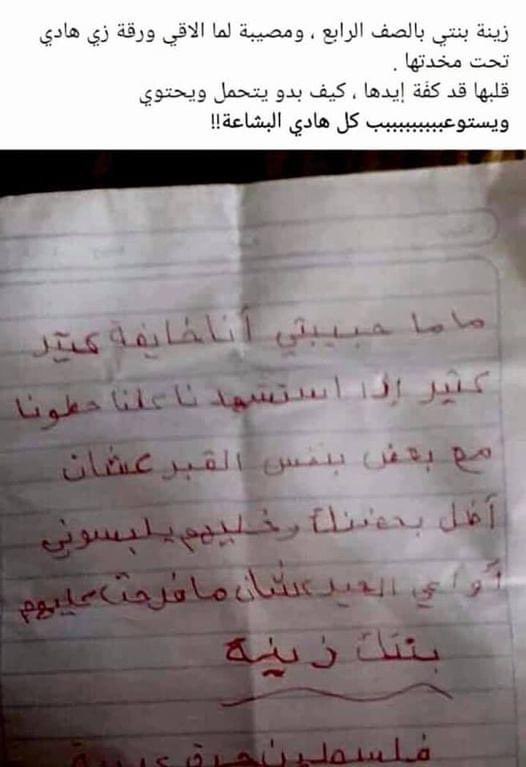 زينة بنتي بالصف الرابع ، ومصيبة لما الاقي ورقة زي هادي
تحت مخدتها .
قلبها قد كفّة إيدها ، كيف بدو يتحمل ويحتوي
ويستوعبببببببببب كل هادي البشاعة!!
ماما حبيبتي أنا خايفة كتير
كتير إذا استشهدنا كلنا حطونا
مع بعض بنفس القبر عشان
أظل بحضنك وخليهم يلبسوني
أواعي العيد عشان ما فرحت عليهم
بنتك زينة
فلسطين حرة عربية